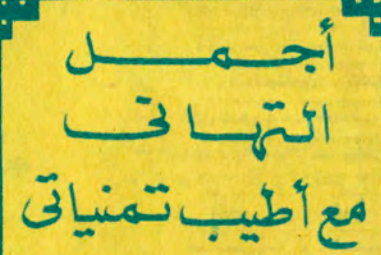 أجمل
التهانى
مع أطيب تمنياتى